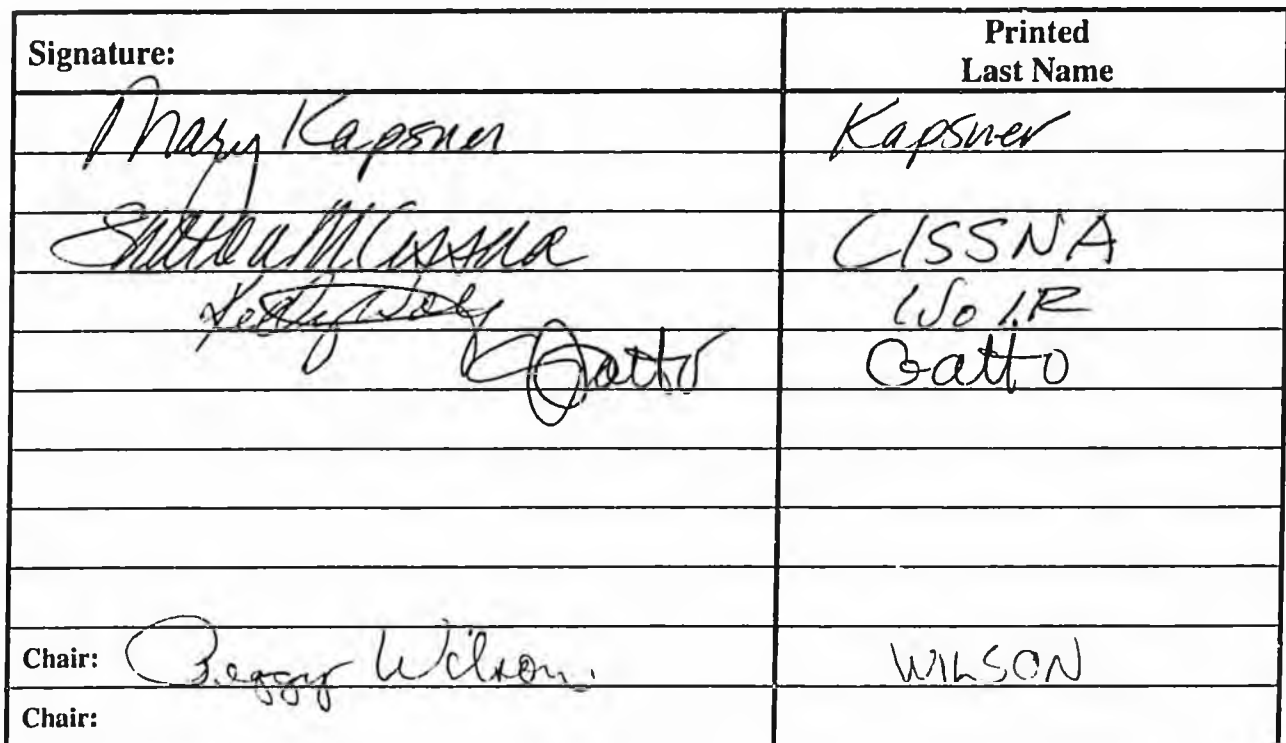 Signature: Printed Last Name
Mary Kapsner Kapsner
M Cissna CISSNA
Gatto Gatto
Chair: Peggy Wilson WILSON
Chair: